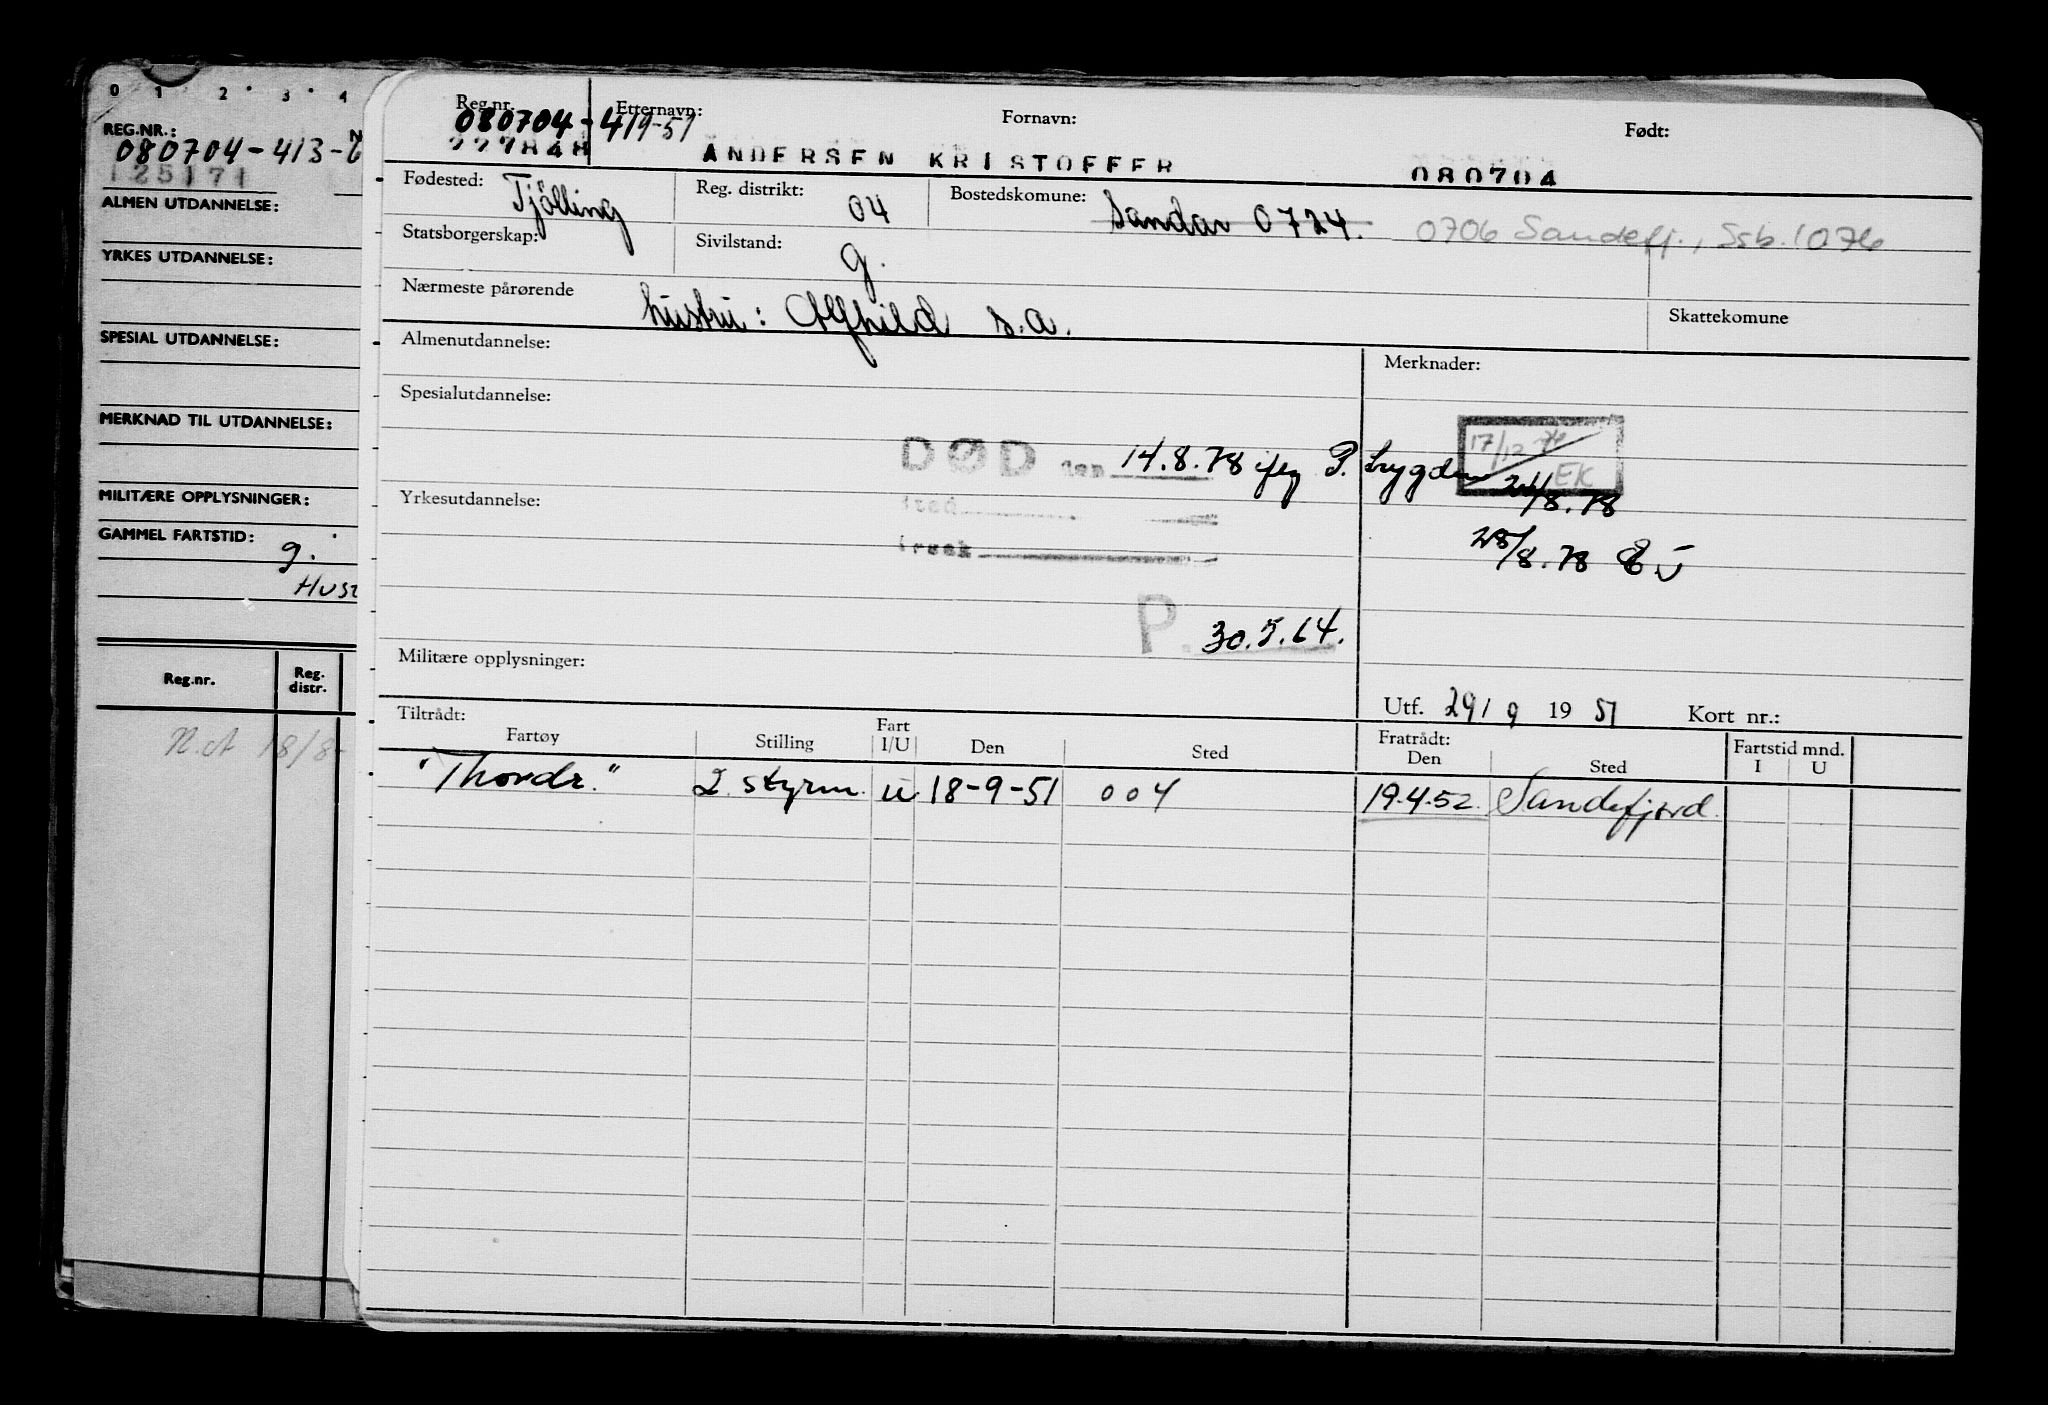 0 1 2 3 4
REG.NR.: N
080704-413-
125171
ALMEN UTDANNELSE:
YRKES UTDANNELSE:
SPESIAL UTDANNELSE:
MERKNAD TIL UTDANNELSE:
MILITÆRE OPPLYSNINGER:
GAMMEL FARTSTID:
g.
Hust
Reg.nr. Reg. distr.
18/8-
Reg.nr. Etternavn: Fornavn: Født:
080704-419-51
227848 ANDERSEN KRISTOFFER 080704
Fødested: Tjölling Reg. distrikt: 04 Bostedskomune: Sandar 0724. 0706 Sandefj., Ssb. 1076
Statsborgerskap: Sivilstand: g.
Nærmeste pårørende hustru: Alfhild s.a. Skattekomune
Almenutdannelse: Merknader:
Spesialutdannelse:
DØD den 14.8.78 iflg P. trygden 24/8.78
17/12 EK
Yrkesutdannelse: sted
28/8.78
årsak
P. 30.5.64.
Militære opplysninger:
Utf. 29/9 1951 Kort nr.:
Tiltrådt: Fratrådt: Fartstid mnd.
Fartøy Stilling Fart I/U Den Sted Den Sted I U
"Thordr." 2. styrm. u 18-9-51 004 19.4.52. Sandefjord.